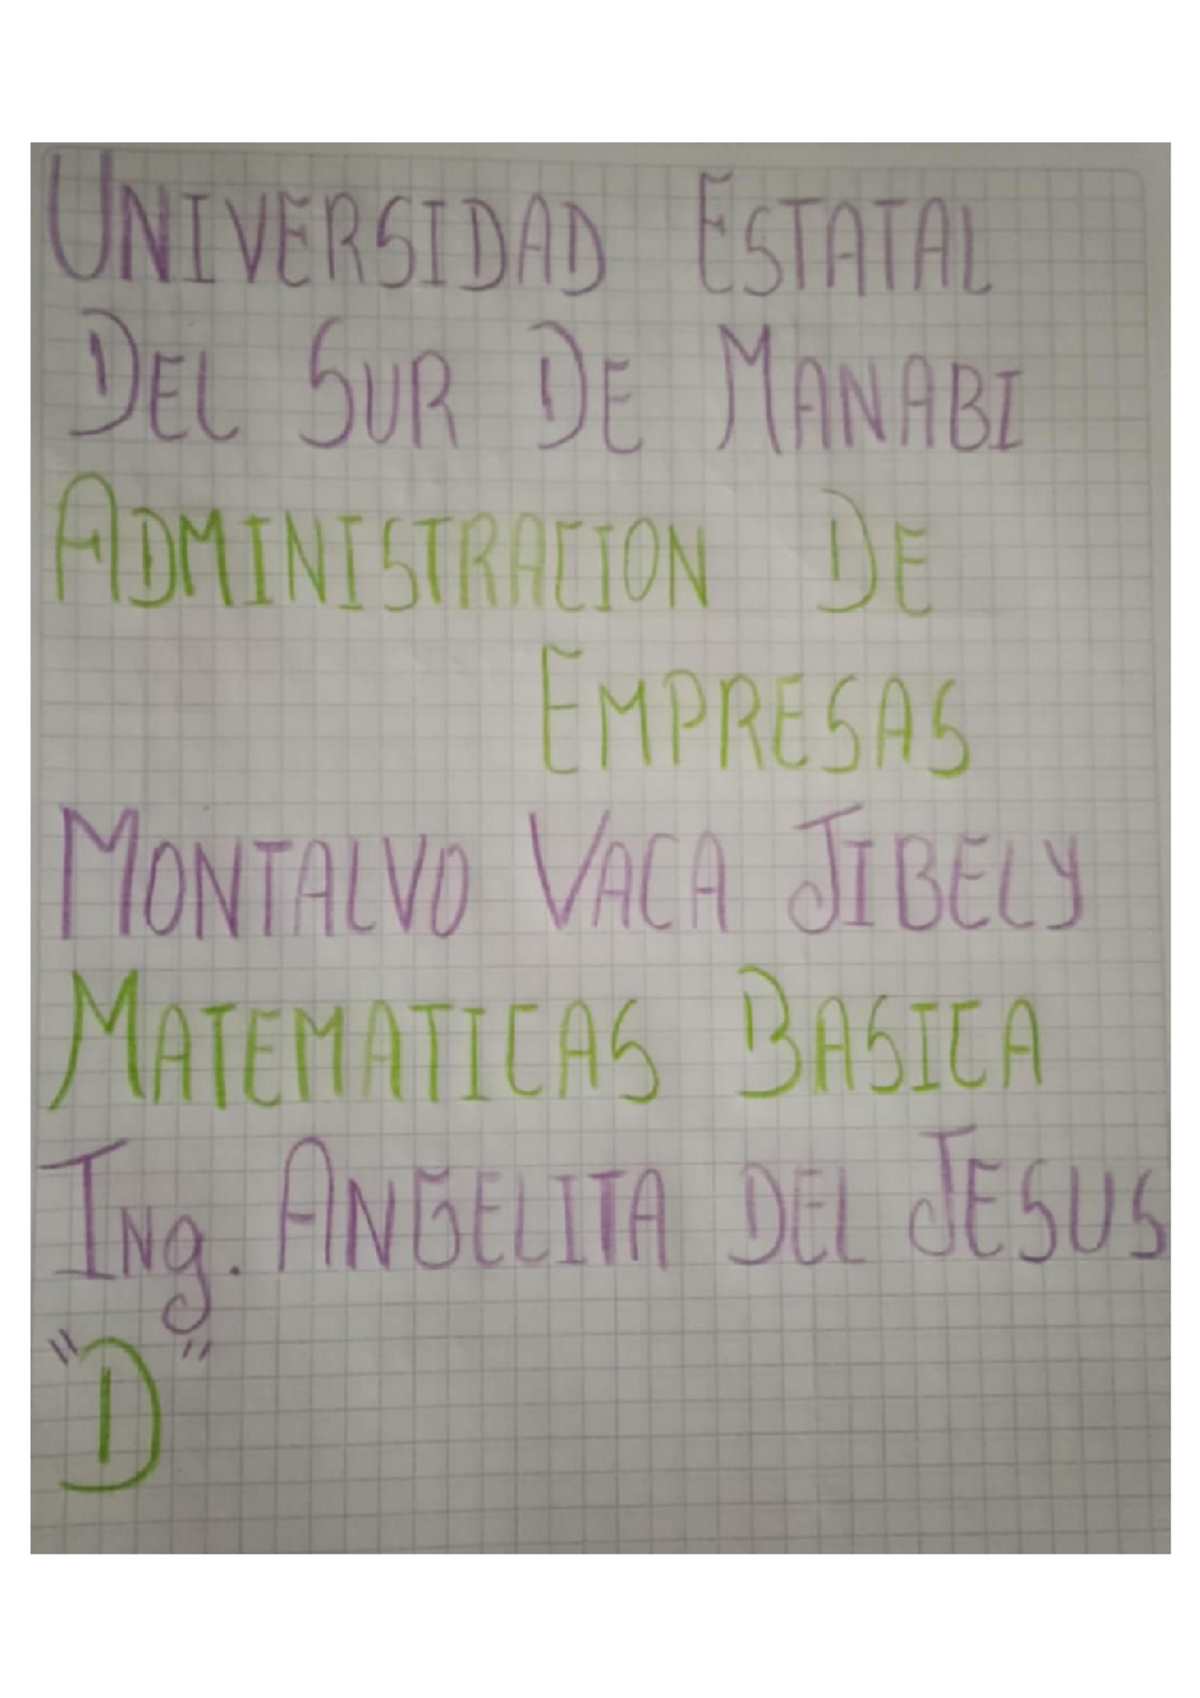 UNIVERSIDAD ESTATAL
DEL SUR DE MANABI
ADMINISTRACION DE
EMPRESAS
MONTALVO VACA JIBELY
MATEMATICAS BASICA
ING. ANGELITA DEL JESUS
"D"